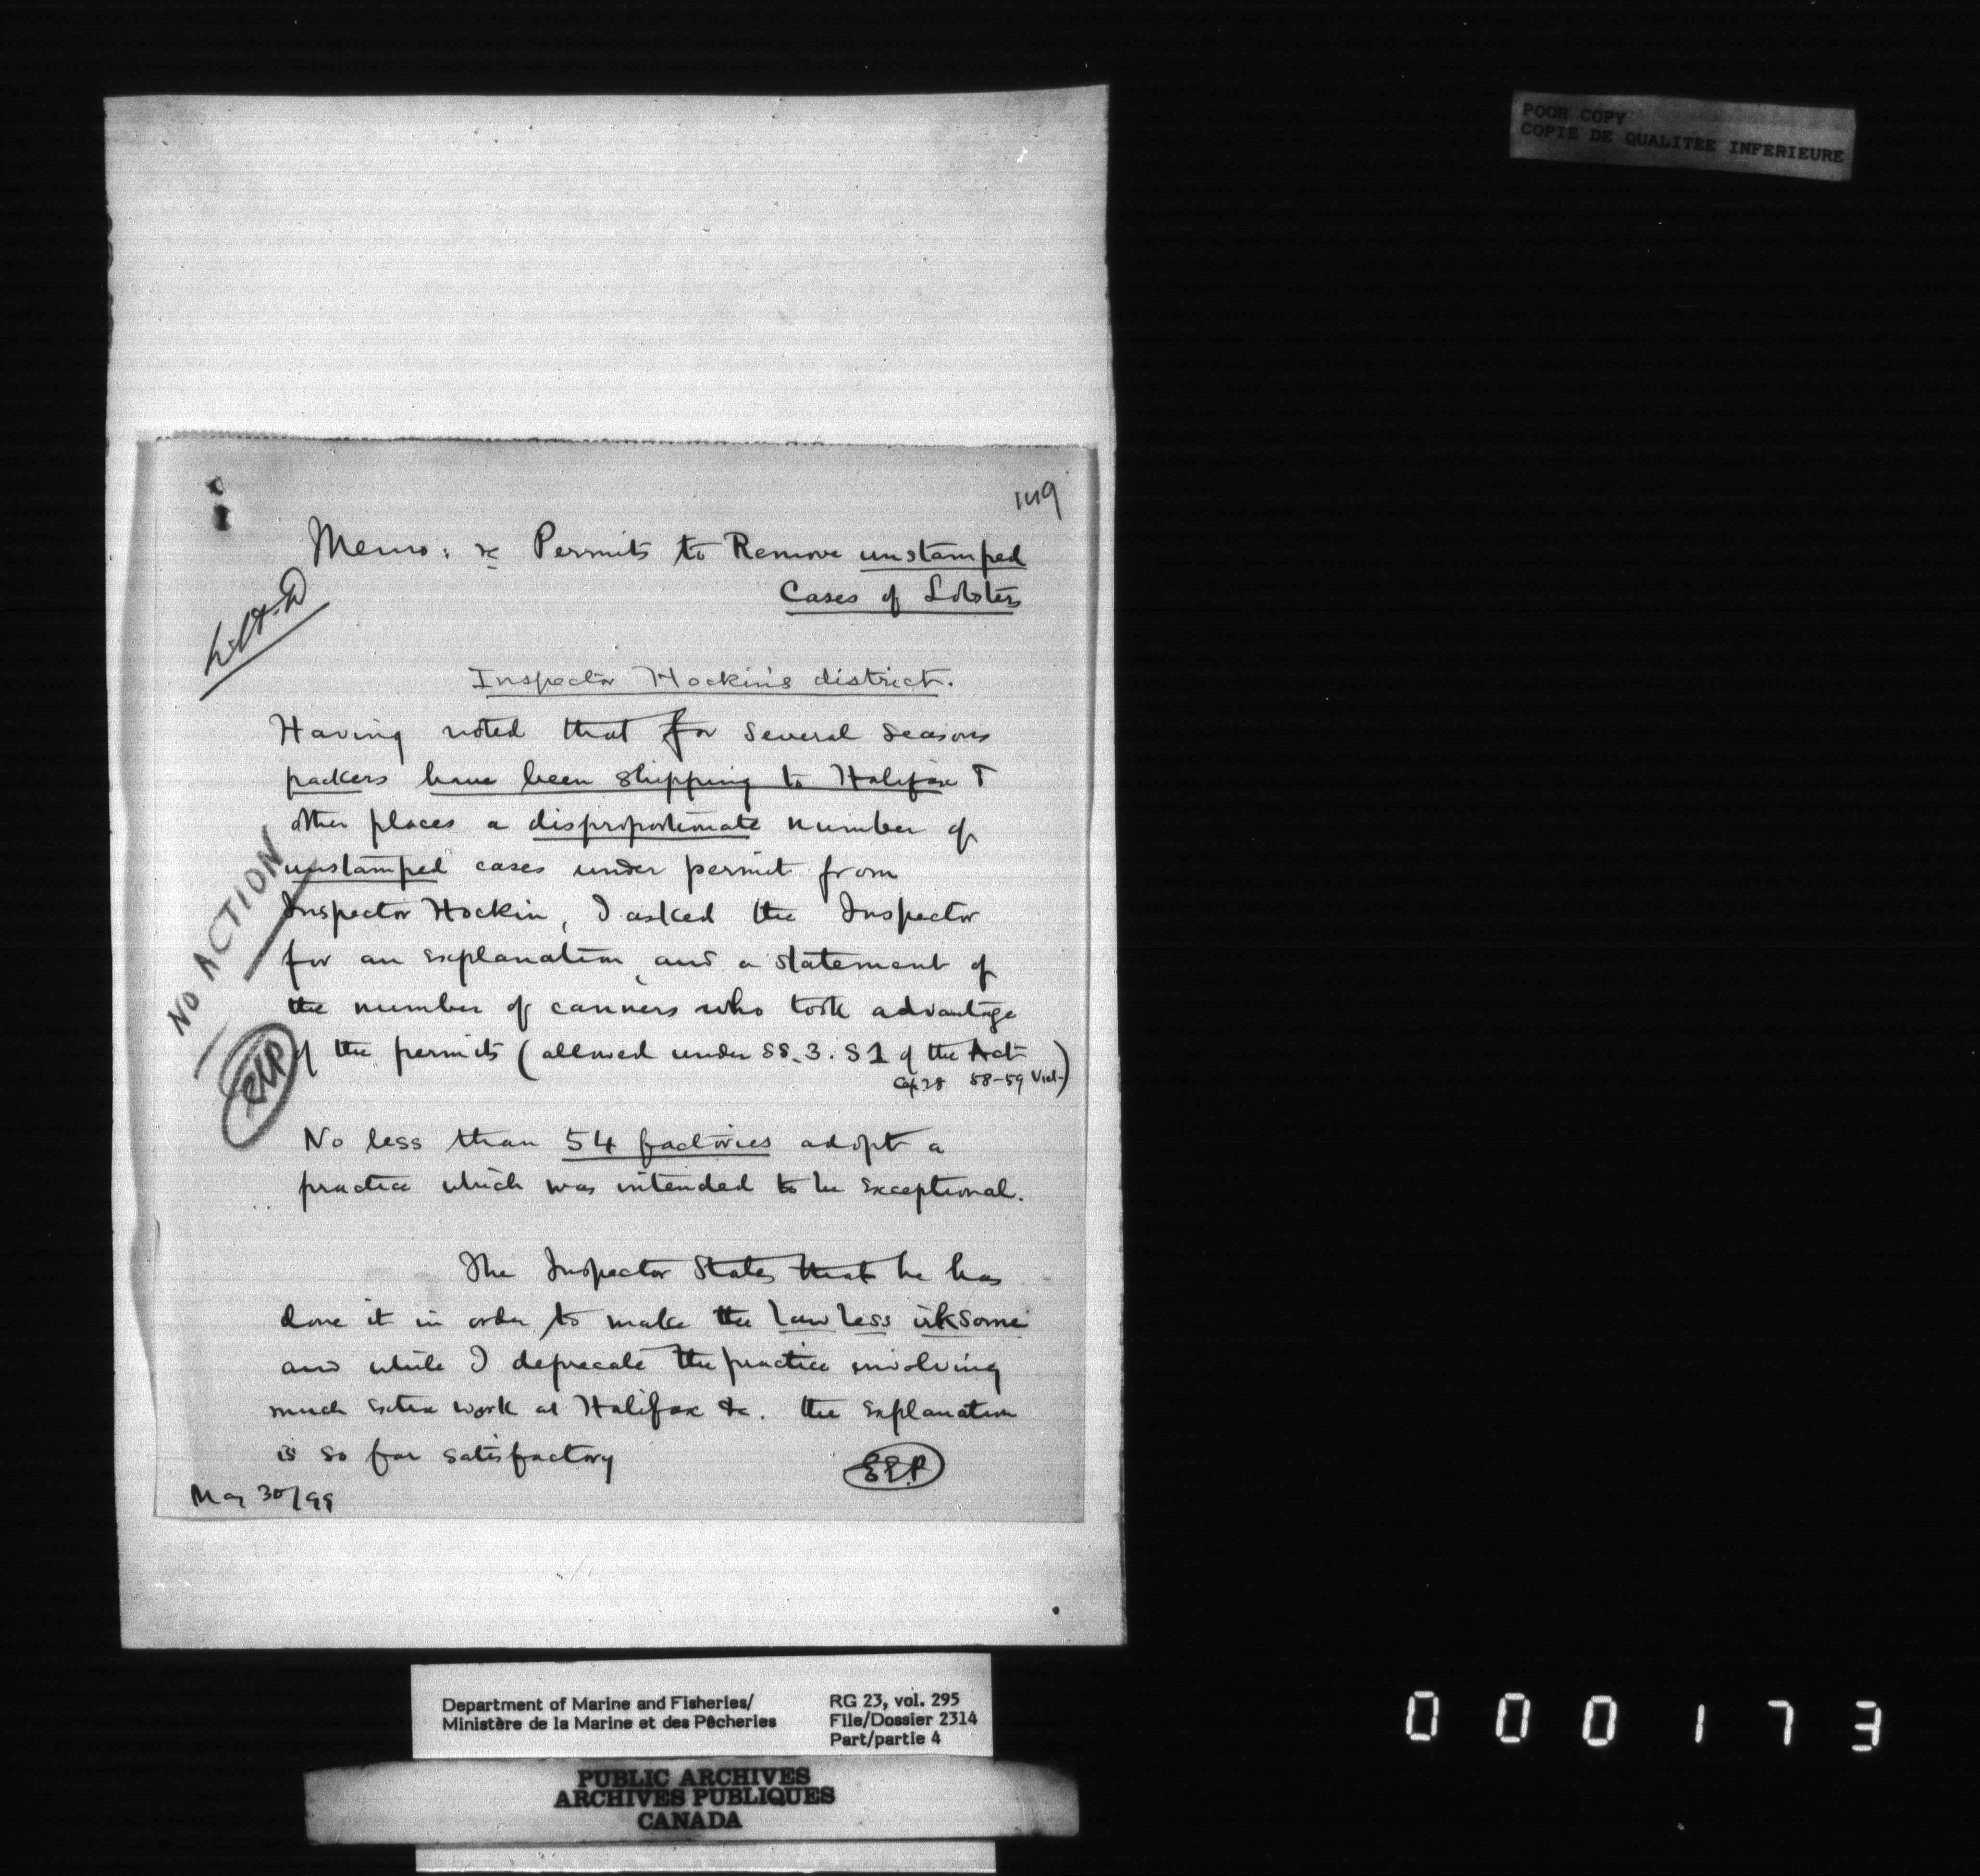 POOR COPY
COPIE DE QUALITEE INFERIEURE
149
Memo: re Permits to Remove unstamped
Cases of Lobsters
Inspector Hockin's district.
Having noted that for several seasons
packers have been shipping to Halifax &
other places a disproportionate number of
unstamped cases under permit from
Inspector Hockin, I asked the Inspector
for an explanation, and a statement of
the number of canners who took advantage
of the permits (allowed under SS. 3. S 1 of the Act
Cap. 28 58-59 Vict.)
NO ACTION
EEP
No less than 54 factories adopt a
practice which was intended to be exceptional.
The Inspector States that he has
done it in order to make the law less irksome
and while I deprecate the practice involving
much extra work at Halifax &c. the explanation
is so far satisfactory
EEP
May 30/99
Department of Marine and Fisheries/
Ministère de la Marine et des Pêcheries
RG 23, vol. 295
File/Dossier 2314
Part/partie 4
PUBLIC ARCHIVES
ARCHIVES PUBLIQUES
CANADA
000173